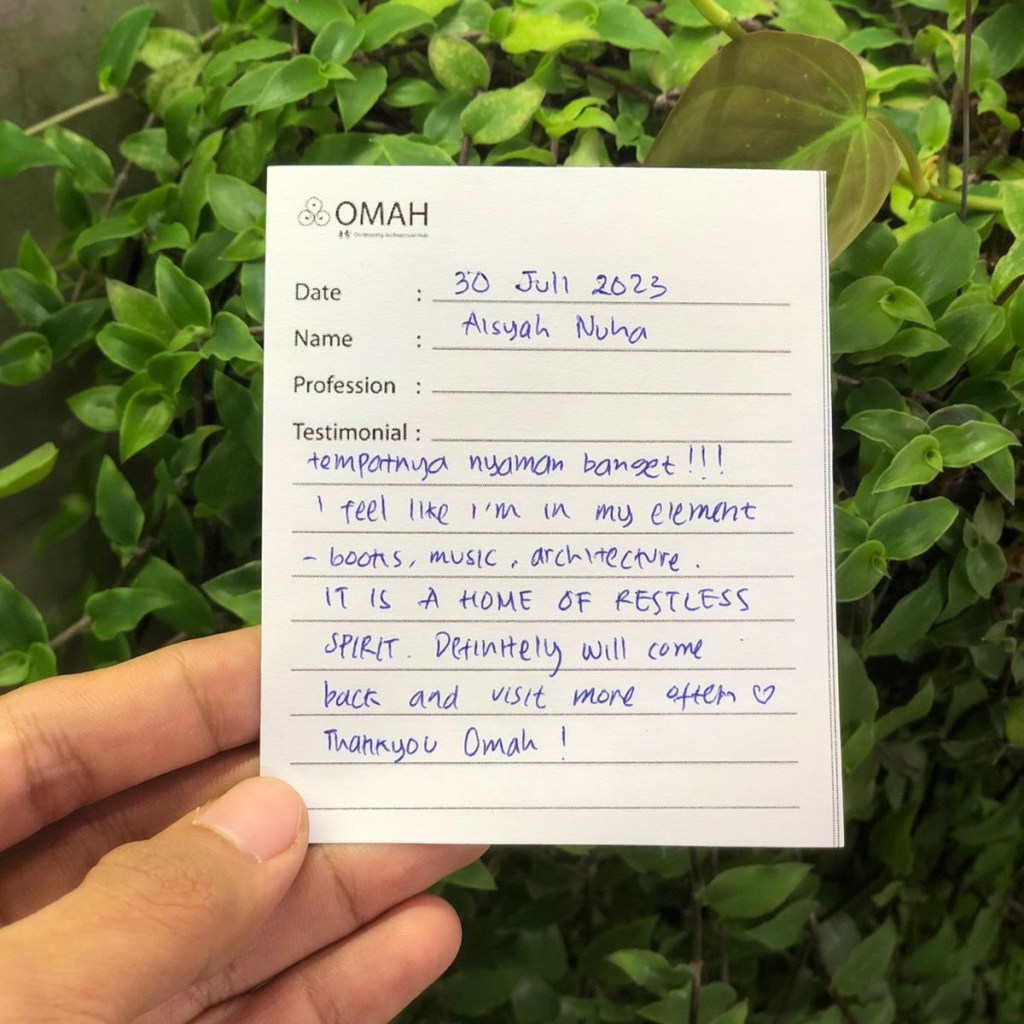 OMAH
Date : 30 Juli 2023
Name : Aisyah Nuha
Profession :
Testimonial :
tempatnya nyaman banget!!!
I feel like I'm in my element
- books, music, architecture.
IT IS A HOME OF RESTLESS
SPIRIT. Definitely will come
back and visit more often ♡
Thankyou Omah !